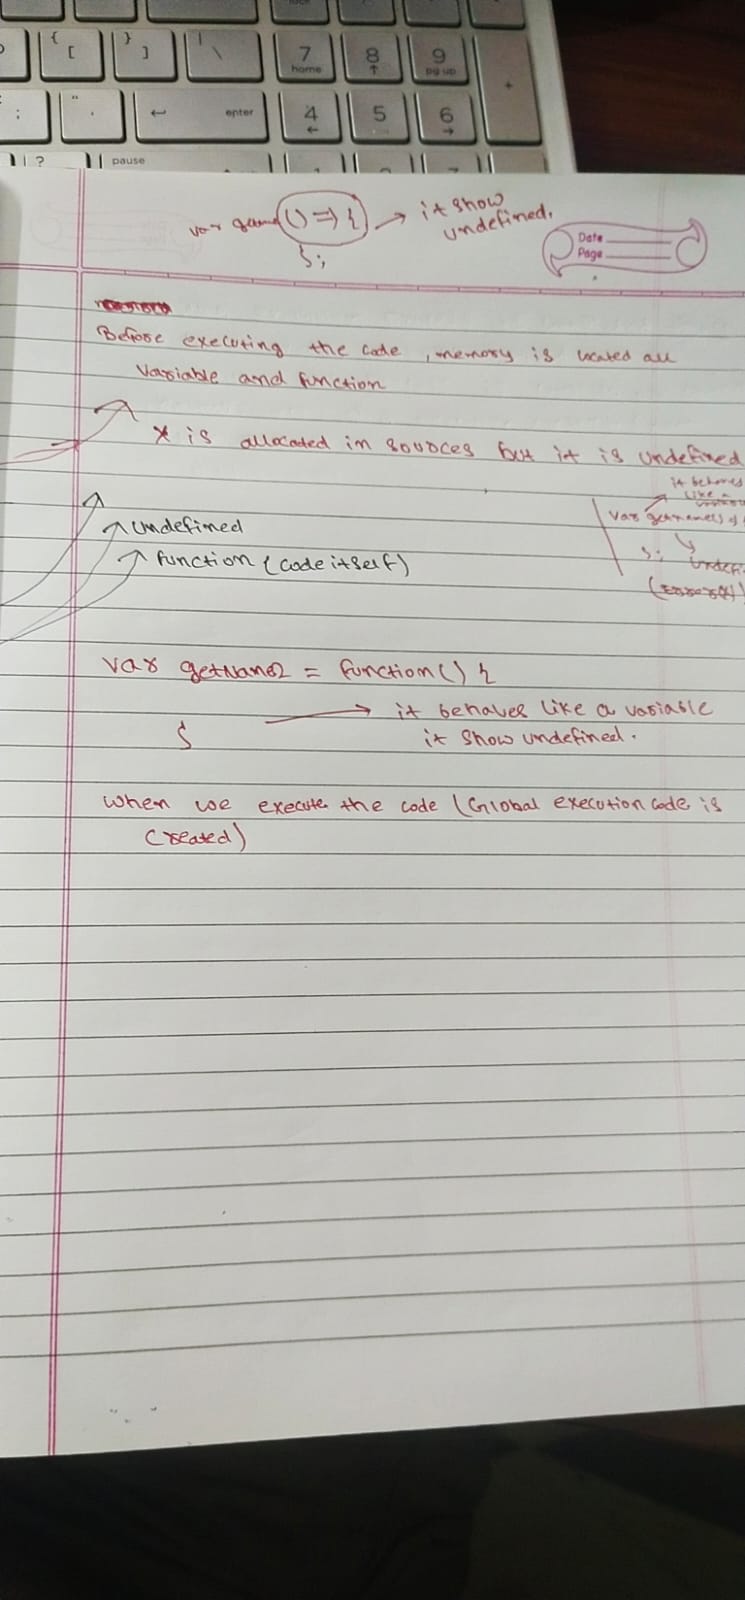 { [
} ]
| \
7 home
8
9 pg up
+
: ;
" '
enter
4
5
6
?
pause
var () => { → it show
undefined.
};
Date
Page
Before executing the code, memory is located all
variable and function
x is allocated in sources but it is undefined
it behaves
like a
var
undefined
function {code itself)
};
(
var getName2 = function() {
→ it behaves like a variable
it show undefined.
}
when we execute the code (Global execution code is
created)